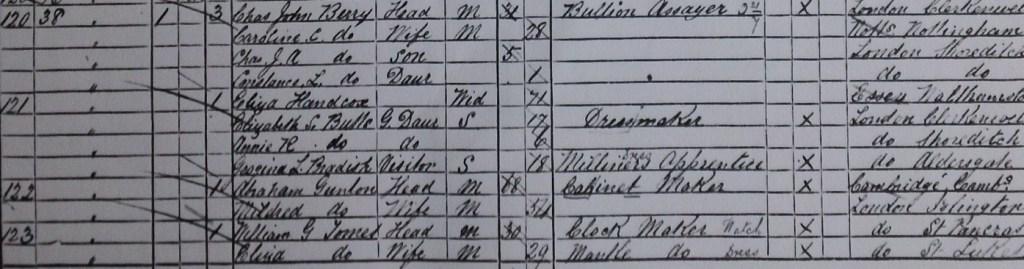 120 38 1 3 Chas John Berry Head M 31 Bullion Assayer X London Clerkenwell
Caroline E. do Wife M 28 Notts. Nottingham
Chas J. A do Son 5 London Shoreditch
Constance L. do Daur 1 do do
121 1 Eliza Handcox Wid 71 Essex Walthamsto
Elizabeth S. Butts G. Daur S 17 Dressmaker X London Clerkenwel
Annie R. do do 6 do Shoreditch
Georgina L. Visitor S 18 Milliners Apprentice X do Aldersgate
122 1 Abraham Head M 68 Cabinet Maker X Cambridge, Cambs
Mildred do Wife M 54 London Islington
123 1 William G Head M 30 Clock Maker Watch X do St Pancras
Eliza do Wife M 29 Mantle do Dress X do St Luke